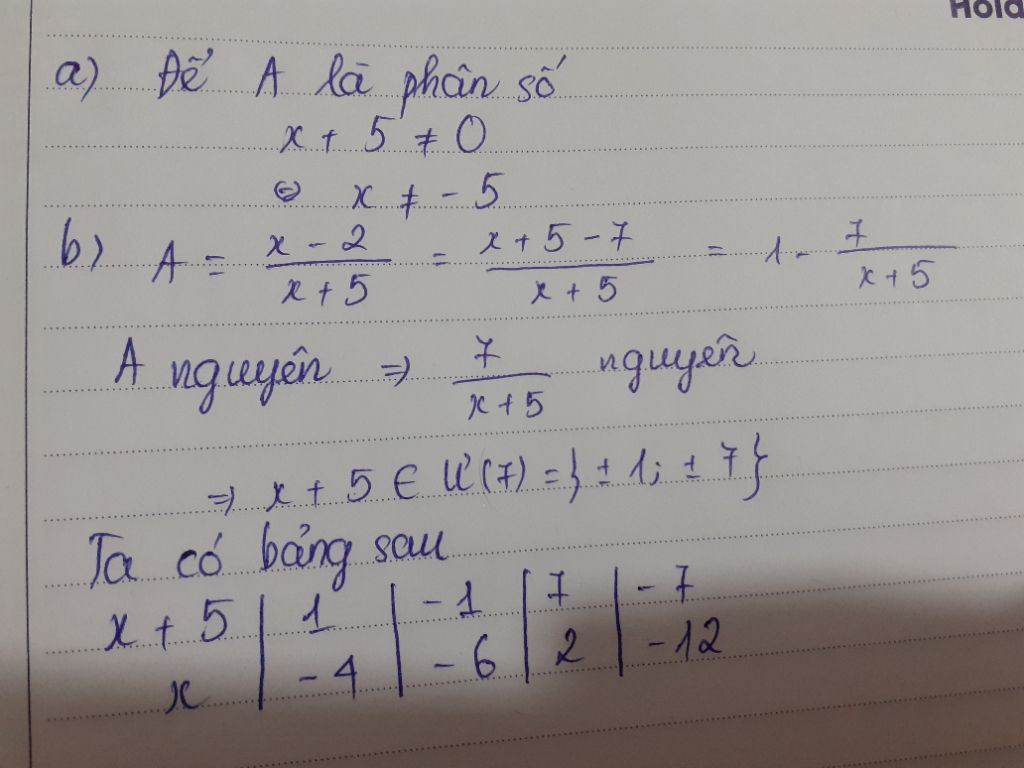 Hola
a) Để A là phân số
x + 5 ≠ 0
⇔ x ≠ - 5
b) A = \frac{x - 2}{x + 5} = \frac{x + 5 - 7}{x + 5} = 1 - \frac{7}{x + 5}
A nguyên ⇒ \frac{7}{x + 5} nguyên
⇒ x + 5 ∈ Ư(7) = {± 1; ± 7}
Ta có bảng sau
x + 5 | 1 | - 1 | 7 | - 7
x | - 4 | - 6 | 2 | - 12